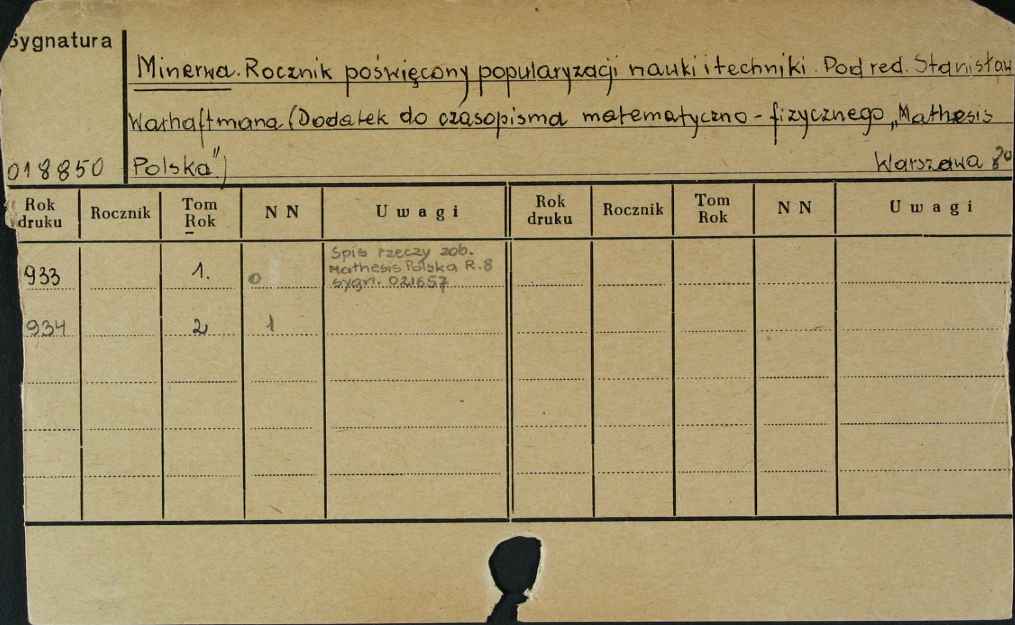 Sygnatura
Minerwa. Rocznik poświęcony popularyzacji nauki i techniki. Pod red. Stanisław
Warhaftmana (Dodatek do czasopisma matematyczno-fizycznego „Mathesis
018850 Polska”) Warszawa
Rok druku Rocznik Tom Rok NN Uwagi Rok druku Rocznik Tom Rok NN Uwagi
Spis rzeczy zob.
933 1. 0 Mathesis Polska R. 8
sygn. 021657
934 2 1